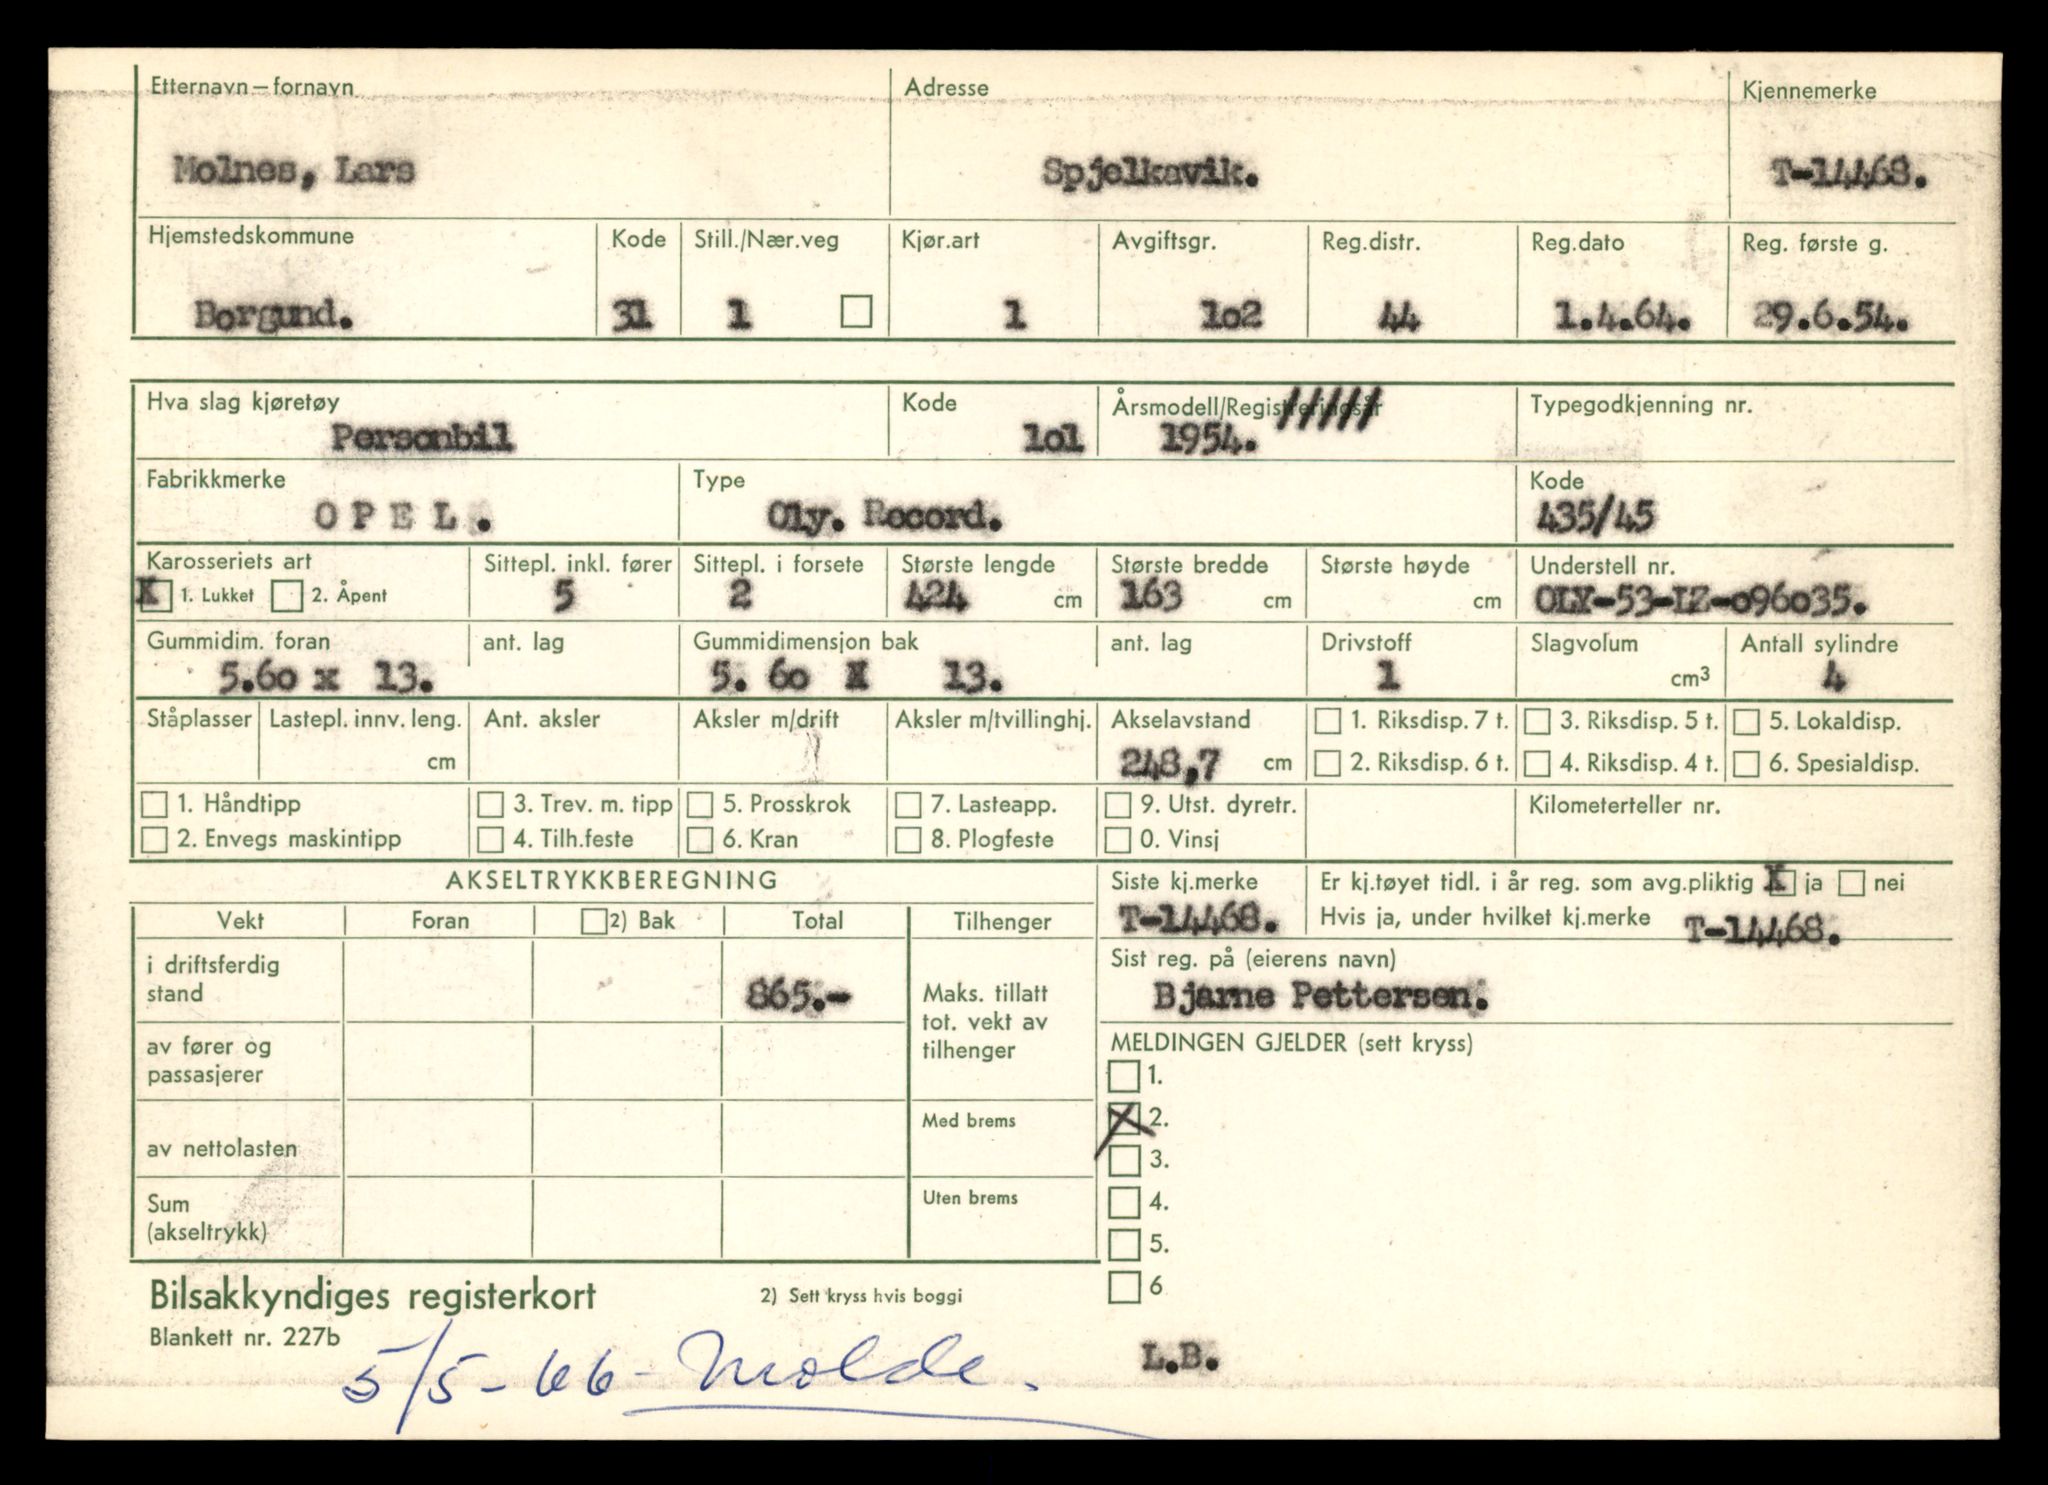 Etternavn – fornavn Adresse Kjennemerke
Molnes, Lars Spjelkavik. T-14468.
Hjemstedskommune Kode Still./Nær.veg Kjør.art Avgiftsgr. Reg.distr. Reg.dato Reg. første g.
Borgund. 31 1 1 1o2 44 1.4.64. 29.6.54.
Hva slag kjøretøy Kode Årsmodell/Registreringsår Typegodkjenning nr.
Personbil 1o1 1954. /////
Fabrikkmerke Type Kode
OPEL. Oly. Record. 435/45
Karosseriets art Sittepl. inkl. fører Sittepl. i forsete Største lengde Største bredde Største høyde Understell nr.
X 1. Lukket 2. Åpent 5 2 424 cm 163 cm cm OLY-53-LZ-o96o35.
Gummidim. foran ant. lag Gummidimensjon bak ant. lag Drivstoff Slagvolum Antall sylindre
5.6o x 13. 5. 6o X 13. 1 cm³ 4
Ståplasser Lastepl. innv. leng. Ant. aksler Aksler m/drift Aksler m/tvillinghj. Akselavstand 1. Riksdisp. 7 t. 3. Riksdisp. 5 t. 5. Lokaldisp.
cm 248,7 cm 2. Riksdisp. 6 t. 4. Riksdisp. 4 t. 6. Spesialdisp.
1. Håndtipp 3. Trev. m. tipp 5. Prosskrok 7. Lasteapp. 9. Utst. dyretr. Kilometerteller nr.
2. Envegs maskintipp 4. Tilh.feste 6. Kran 8. Plogfeste 0. Vinsj
AKSELTRYKKBEREGNING Siste kj.merke Er kj.tøyet tidl. i år reg. som avg.pliktig X ja nei
Vekt Foran 2) Bak Total Tilhenger T-14468. Hvis ja, under hvilket kj.merke T-14468.
i driftsferdig stand 865.- Sist reg. på (eierens navn)
Bjarne Pettersen.
Maks. tillatt tot. vekt av tilhenger
av fører og passasjerer MELDINGEN GJELDER (sett kryss)
1.
av nettolasten Med brems X 2.
3.
Sum (akseltrykk) Uten brems 4.
5.
6
Bilsakkyndiges registerkort 2) Sett kryss hvis boggi
Blankett nr. 227b
5/5-66- Molde. L.B.